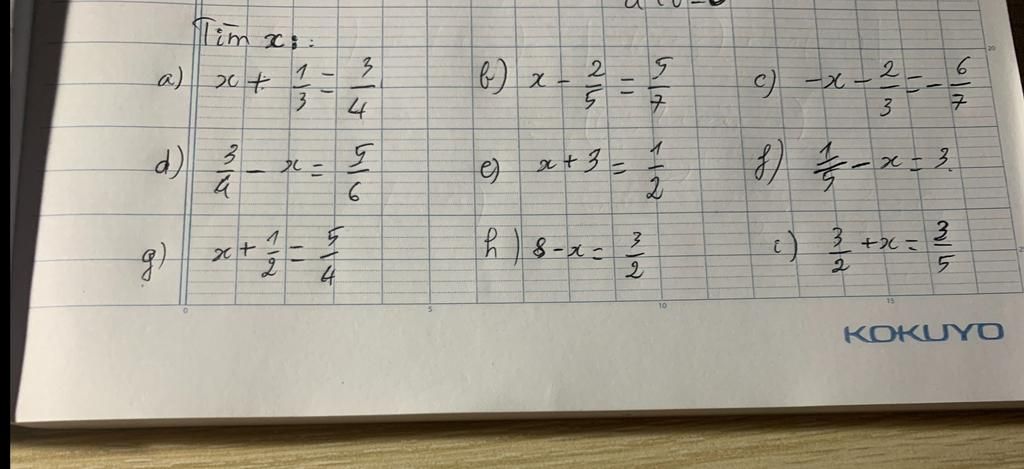 Tìm x:
a) x + 1/3 = 3/4 b) x - 2/5 = 5/7 c) -x - 2/3 = - 6/7
d) 3/4 - x = 5/6 e) x + 3 = 1/2 f) 1/5 - x = 3.
g) x + 1/2 = 5/4 h) 8 - x = 3/2 i) 3/2 + x = 3/5
0 5 10 15
20
KOKUYO